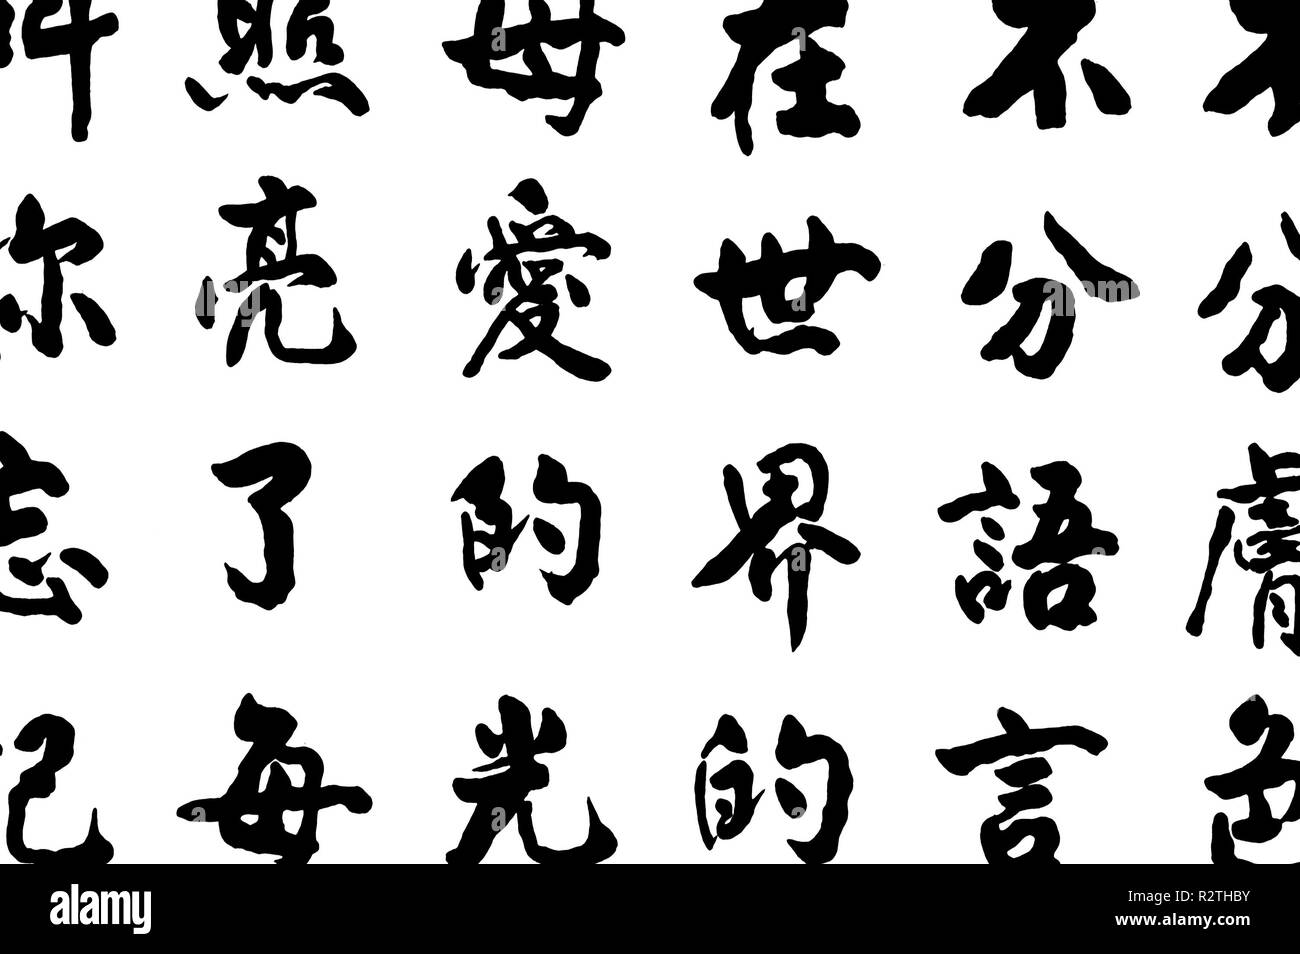 不分膚色
不分語言
在世界的
母愛的光
照亮了每
你忘
alamy
Image ID: R2THBY
www.alamy.com